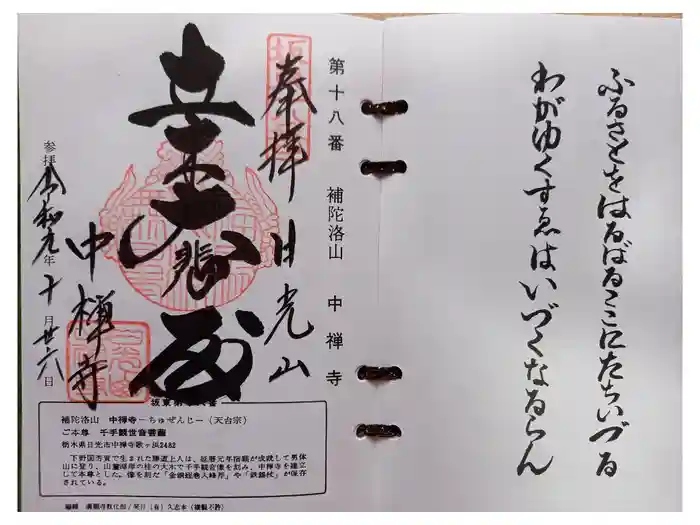 ふるさとをはるばるここにたちいづる
わがゆくすゑはいづくなるらん
第十八番　補陀洛山　中禅寺
奉拝　日光山
立木大悲殿
中禅寺
参拝令和元年十月廿六日
坂東第十八番
補陀洛山　中禅寺―ちゅぜんじ―（天台宗）
ご本尊　千手観世音菩薩
栃木県日光市中禅寺歌ヶ浜2482
下野国芳賀で生まれた勝道上人は、延暦元年宿願が成就して男体
山に登り、山麓湖岸の桂の大木で千手観音像を刻み、中禅寺を建立
して本尊とした。像を刻んだ「金銅経巻入峰斧」や「鉄錫杖」が保存
されている。